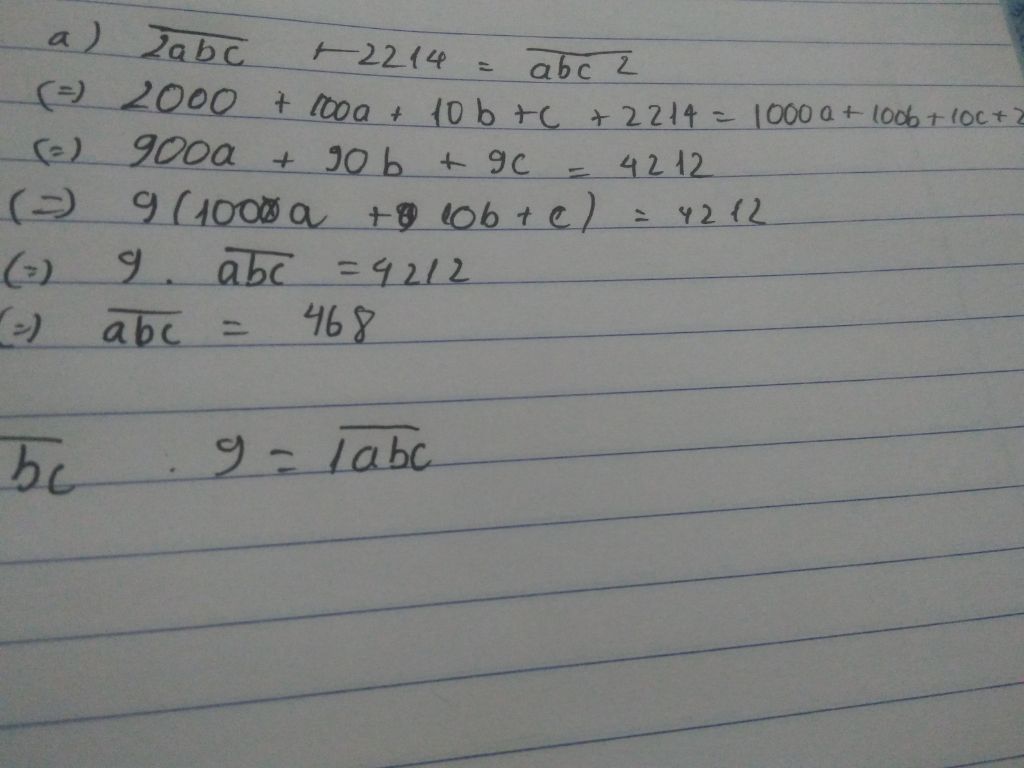 a) 2abc + 2214 = abc2
(=) 2000 + 100a + 10b + c + 2214 = 1000a + 100b + 10c + 2
(=) 900a + 90b + 9c = 4212
(=) 9(100a + 10b + c) = 4212
(=) 9 . abc = 4212
(=) abc = 468
bc . 9 = 1abc